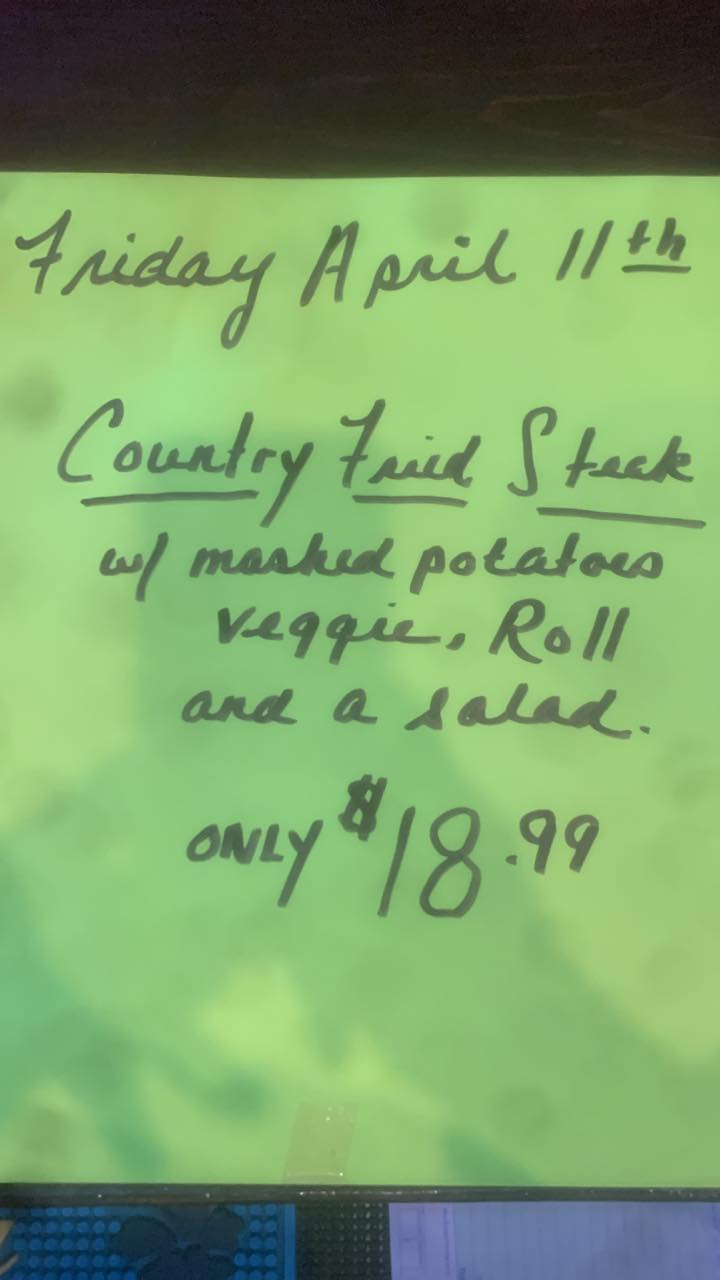 Friday April 11th
Country Fried Steak
w/ mashed potatoes
veggie, Roll
and a salad.
ONLY $18.99